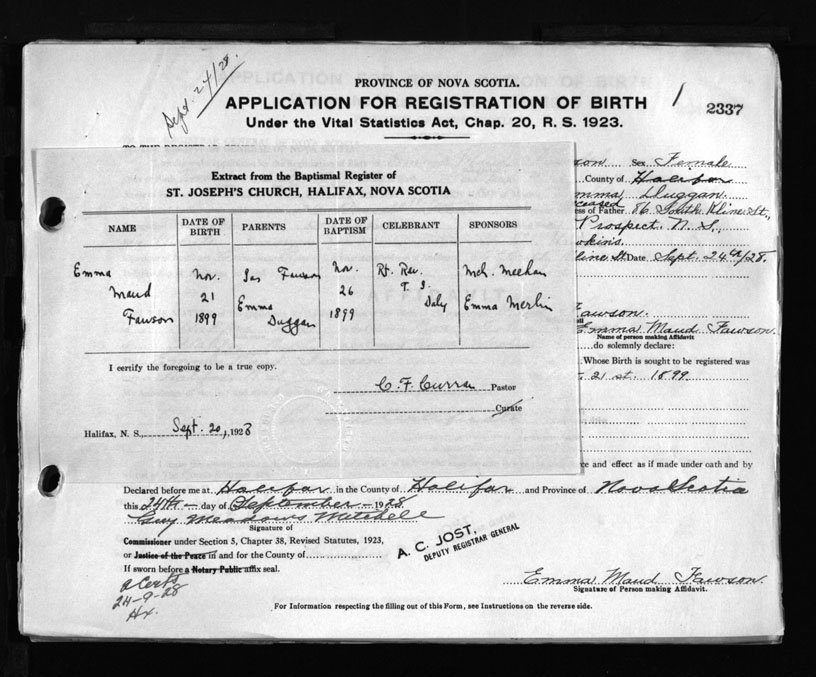 Sept. 24/28.
PROVINCE OF NOVA SCOTIA.
APPLICATION FOR REGISTRATION OF BIRTH
Under the Vital Statistics Act, Chap. 20, R. S. 1923.
1
2337
Extract from the Baptismal Register of
ST. JOSEPH'S CHURCH, HALIFAX, NOVA SCOTIA
NAME DATE OF BIRTH PARENTS DATE OF BAPTISM CELEBRANT SPONSORS
Emma Nov. Jas Fawson Nov. Rt. Rev. Mch. Meehan
Maud 21 Emma 26 Daly Emma Merlin
Fawson 1899 Duggan 1899
I certify the foregoing to be a true copy.
C. F. Curran Pastor
Curate
Halifax, N. S., Sept. 20, 1928
son Sex Female
County of Halifax
mma Duggan
ceased
ess of Father 86 South Kline St.,
Prospect. N. S.,
wkins.
line St Date Sept. 24th/28.
Fawson.
Emma Maud Fawson.
Name of person making Affidavit
do solemnly declare:
Whose Birth is sought to be registered was
21 st. 1899.
ce and effect as if made under oath and by
Declared before me at Halifax in the County of Halifax and Province of Nova Scotia
this 24th day of September 1928
Guy Meadows Mitchell
Signature of
Commissioner under Section 5, Chapter 38, Revised Statutes, 1923,
or Justice of the Peace in and for the County of
If sworn before a Notary Public affix seal.
A. C. JOST,
DEPUTY REGISTRAR GENERAL
a Certs
24-9-28
Hx.
Emma Maud Fawson.
Signature of Person making Affidavit.
For Information respecting the filling out of this Form, see Instructions on the reverse side.